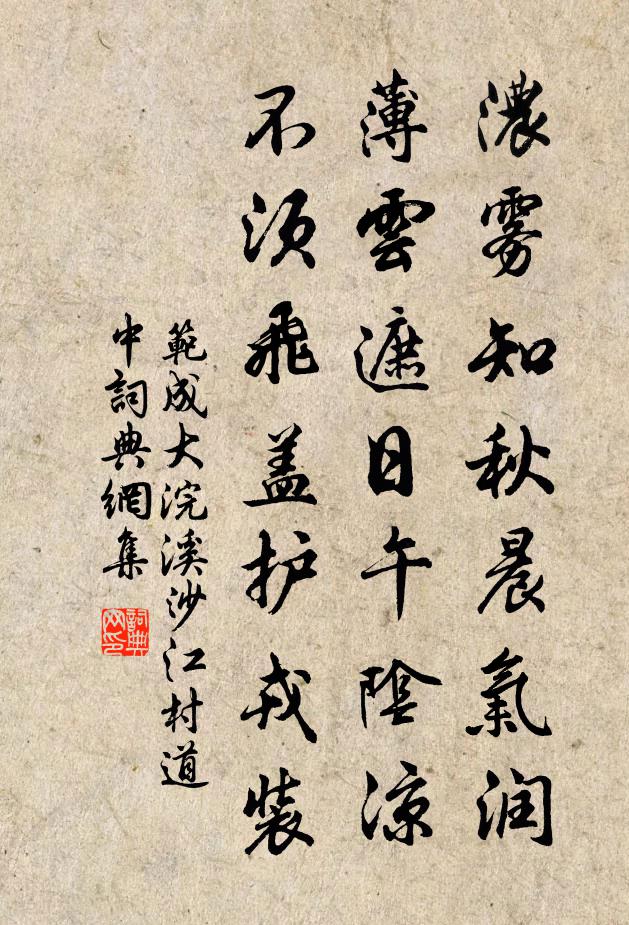 濃雾知秋晨氣润
薄雲遮日午陰涼
不须飛盖护戎裝
範成大浣溪沙江村道
中詞典網集
詞典
网印